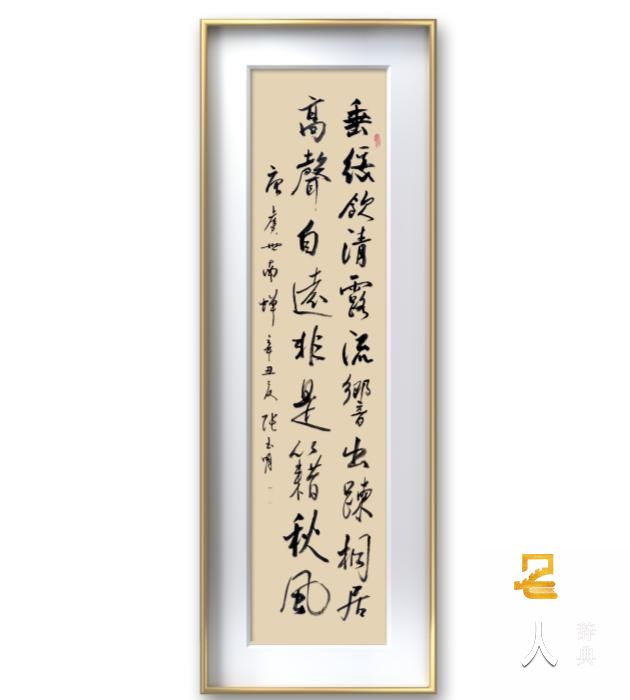 垂緌飲清露流響出踈桐居
高聲自遠非是籍秋風
唐虞世南蟬 辛丑夏 張玉明
名人
辞典